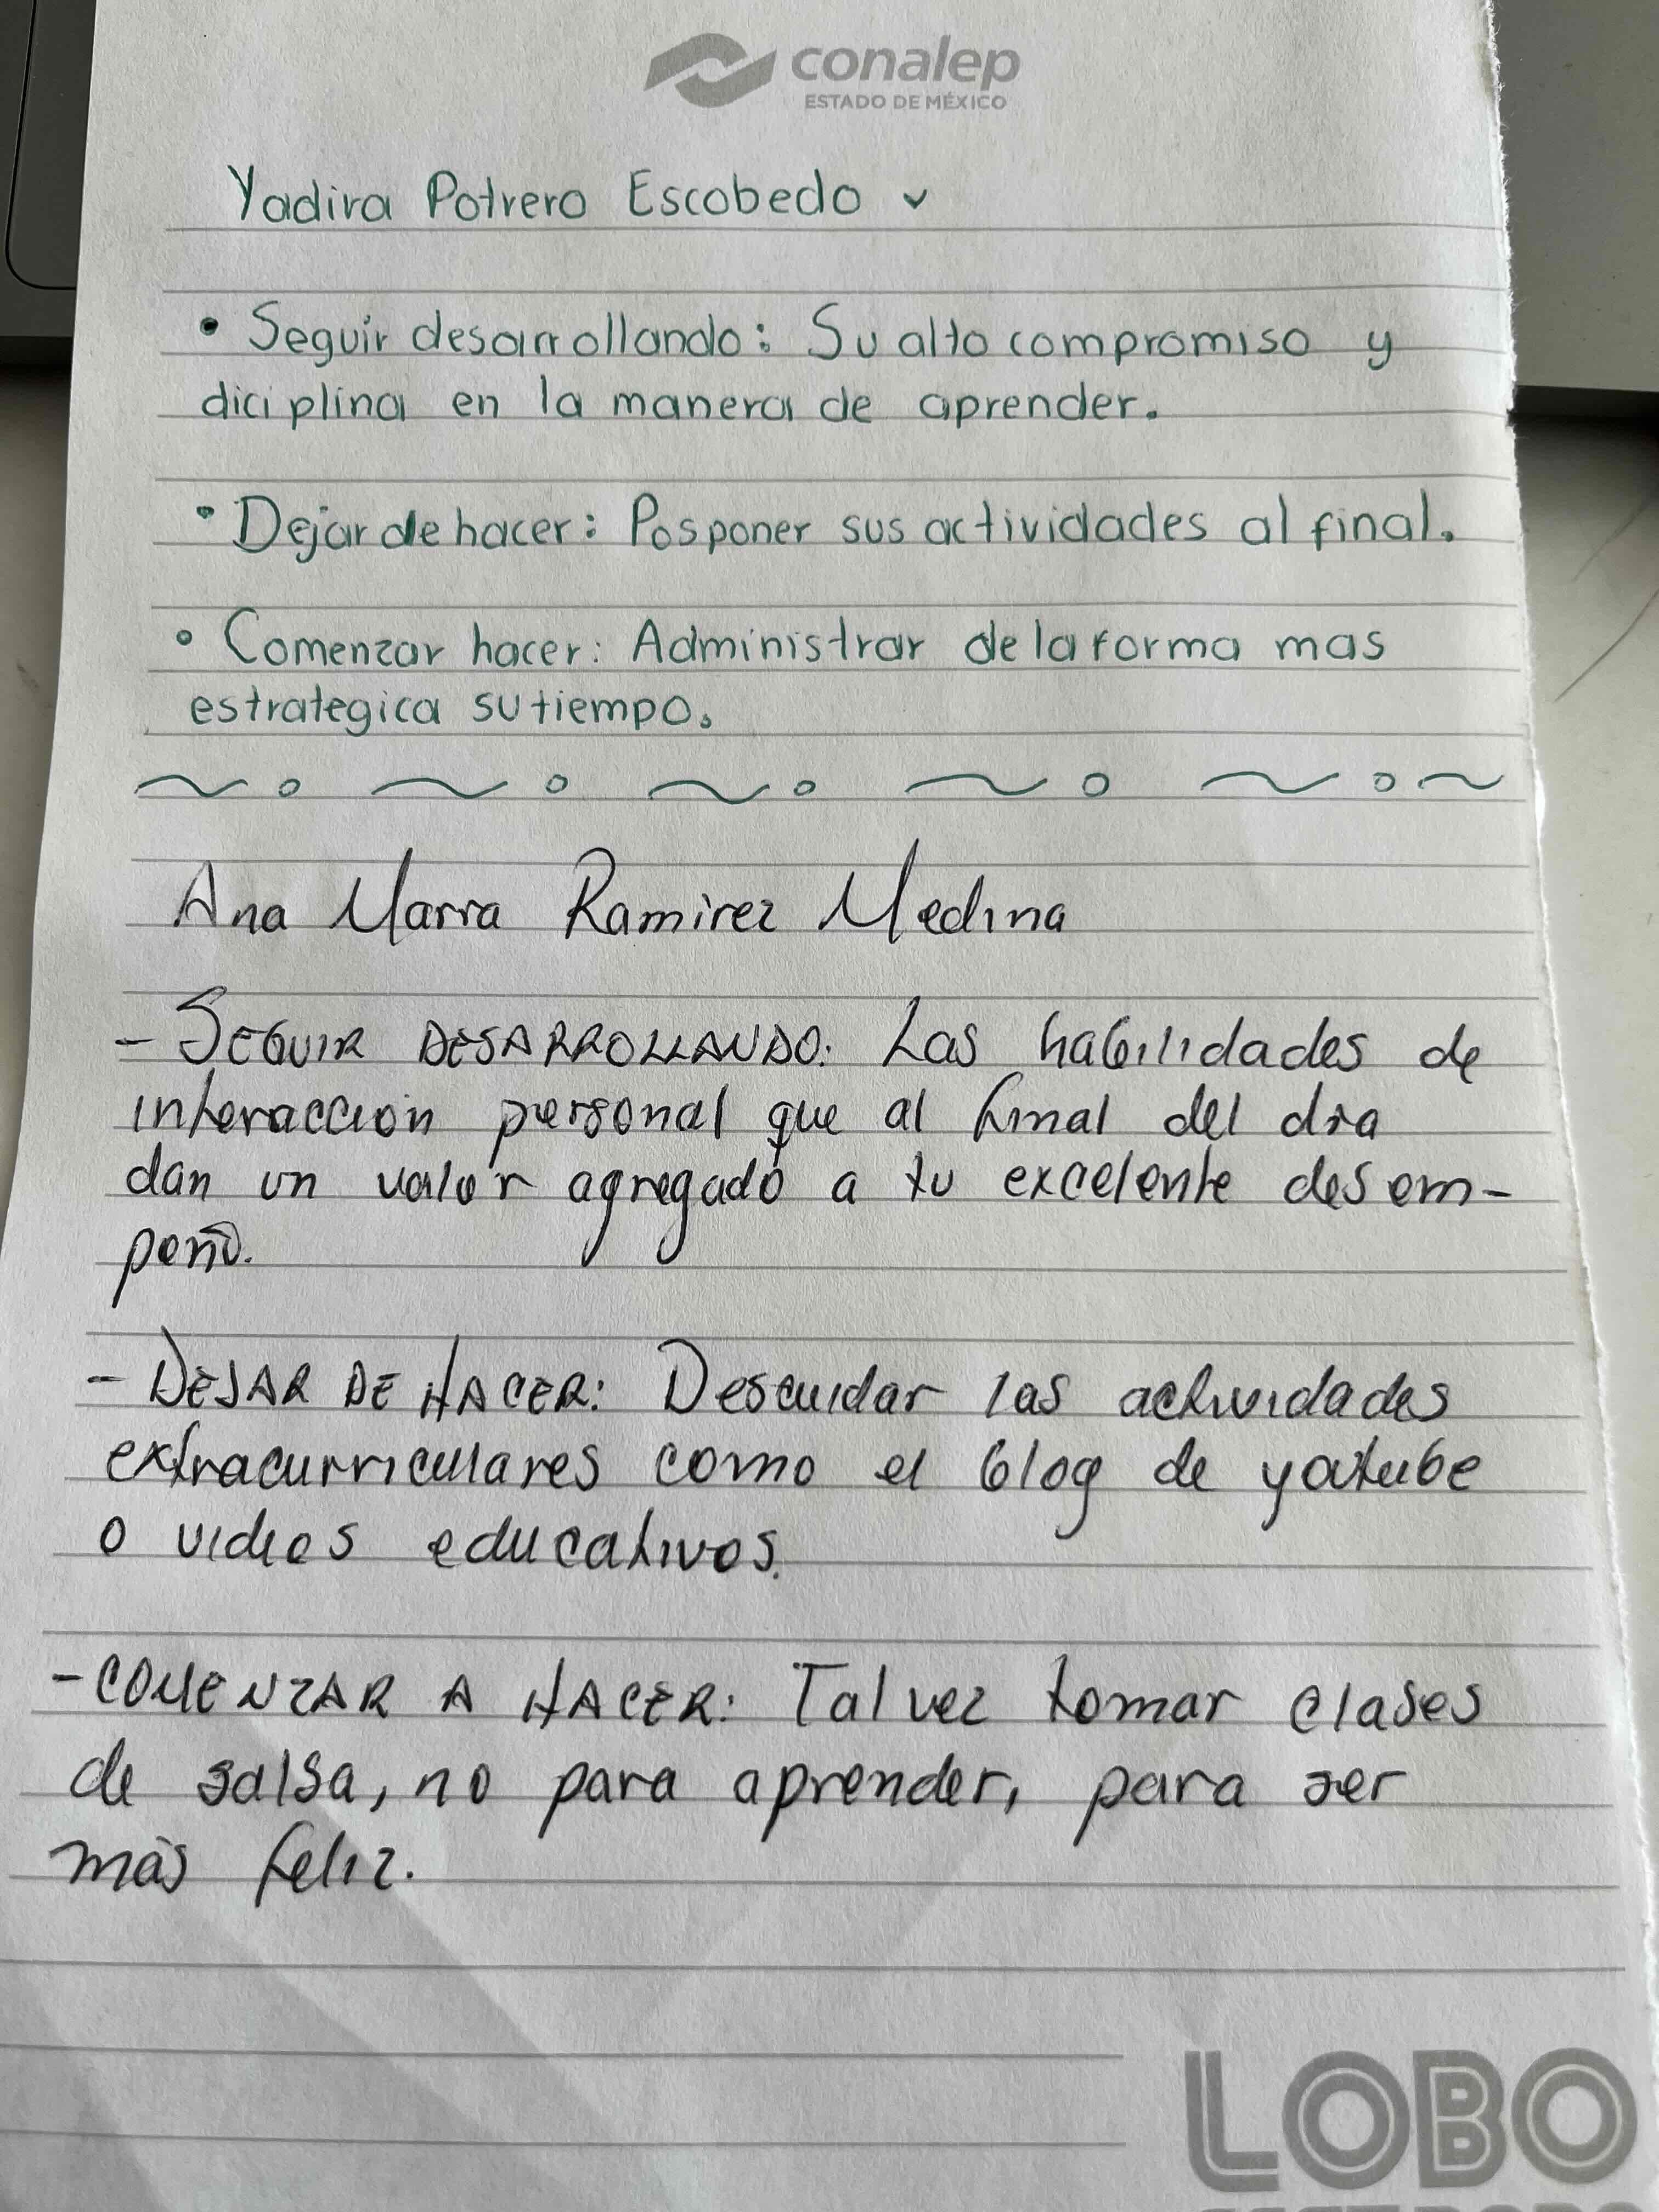 conalep
ESTADO DE MÉXICO
Yadira Potrero Escobedo
• Seguir desarrollando: Su alto compromiso y
diciplina en la manera de aprender.
• Dejar de hacer: Posponer sus actividades al final.
• Comenzar hacer: Administrar de la forma mas
estrategica su tiempo.
Ana María Ramirez Medina
- SEGUIR DESARROLLANDO: Las habilidades de
interacción personal que al final del día
dan un valor agregado a tu excelente desem-
peño.
- DEJAR DE HACER: Descuidar las actividades
extracurriculares como el blog de yotube
o videos educativos.
- COMENZAR A HACER: Tal vez tomar clases
de salsa, no para aprender, para ser
más feliz.
LOBO